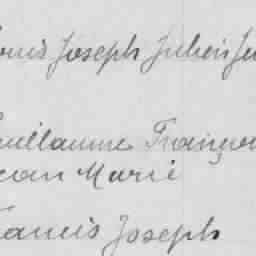 ouis Joseph Julien Ju
uillaume Françoi
ean Marie
rancis Joseph